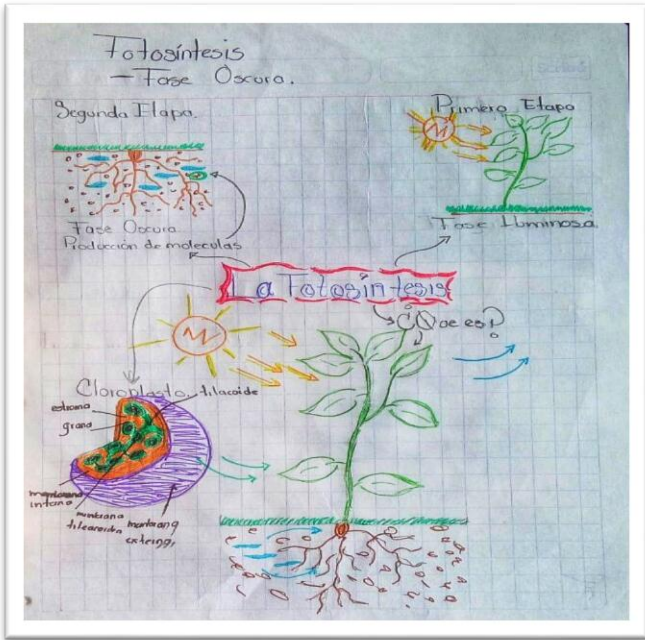 Fotosíntesis
– Fase Oscura.
Segunda Etapa.
Primera Etapa
Fase Oscura
Producción de moleculas
Fase Iluminosa
La Fotosíntesis
¿Que es?
Cloroplasto
tilacoide
estroma
grana
membrana
interna
membrana
membrana
externa